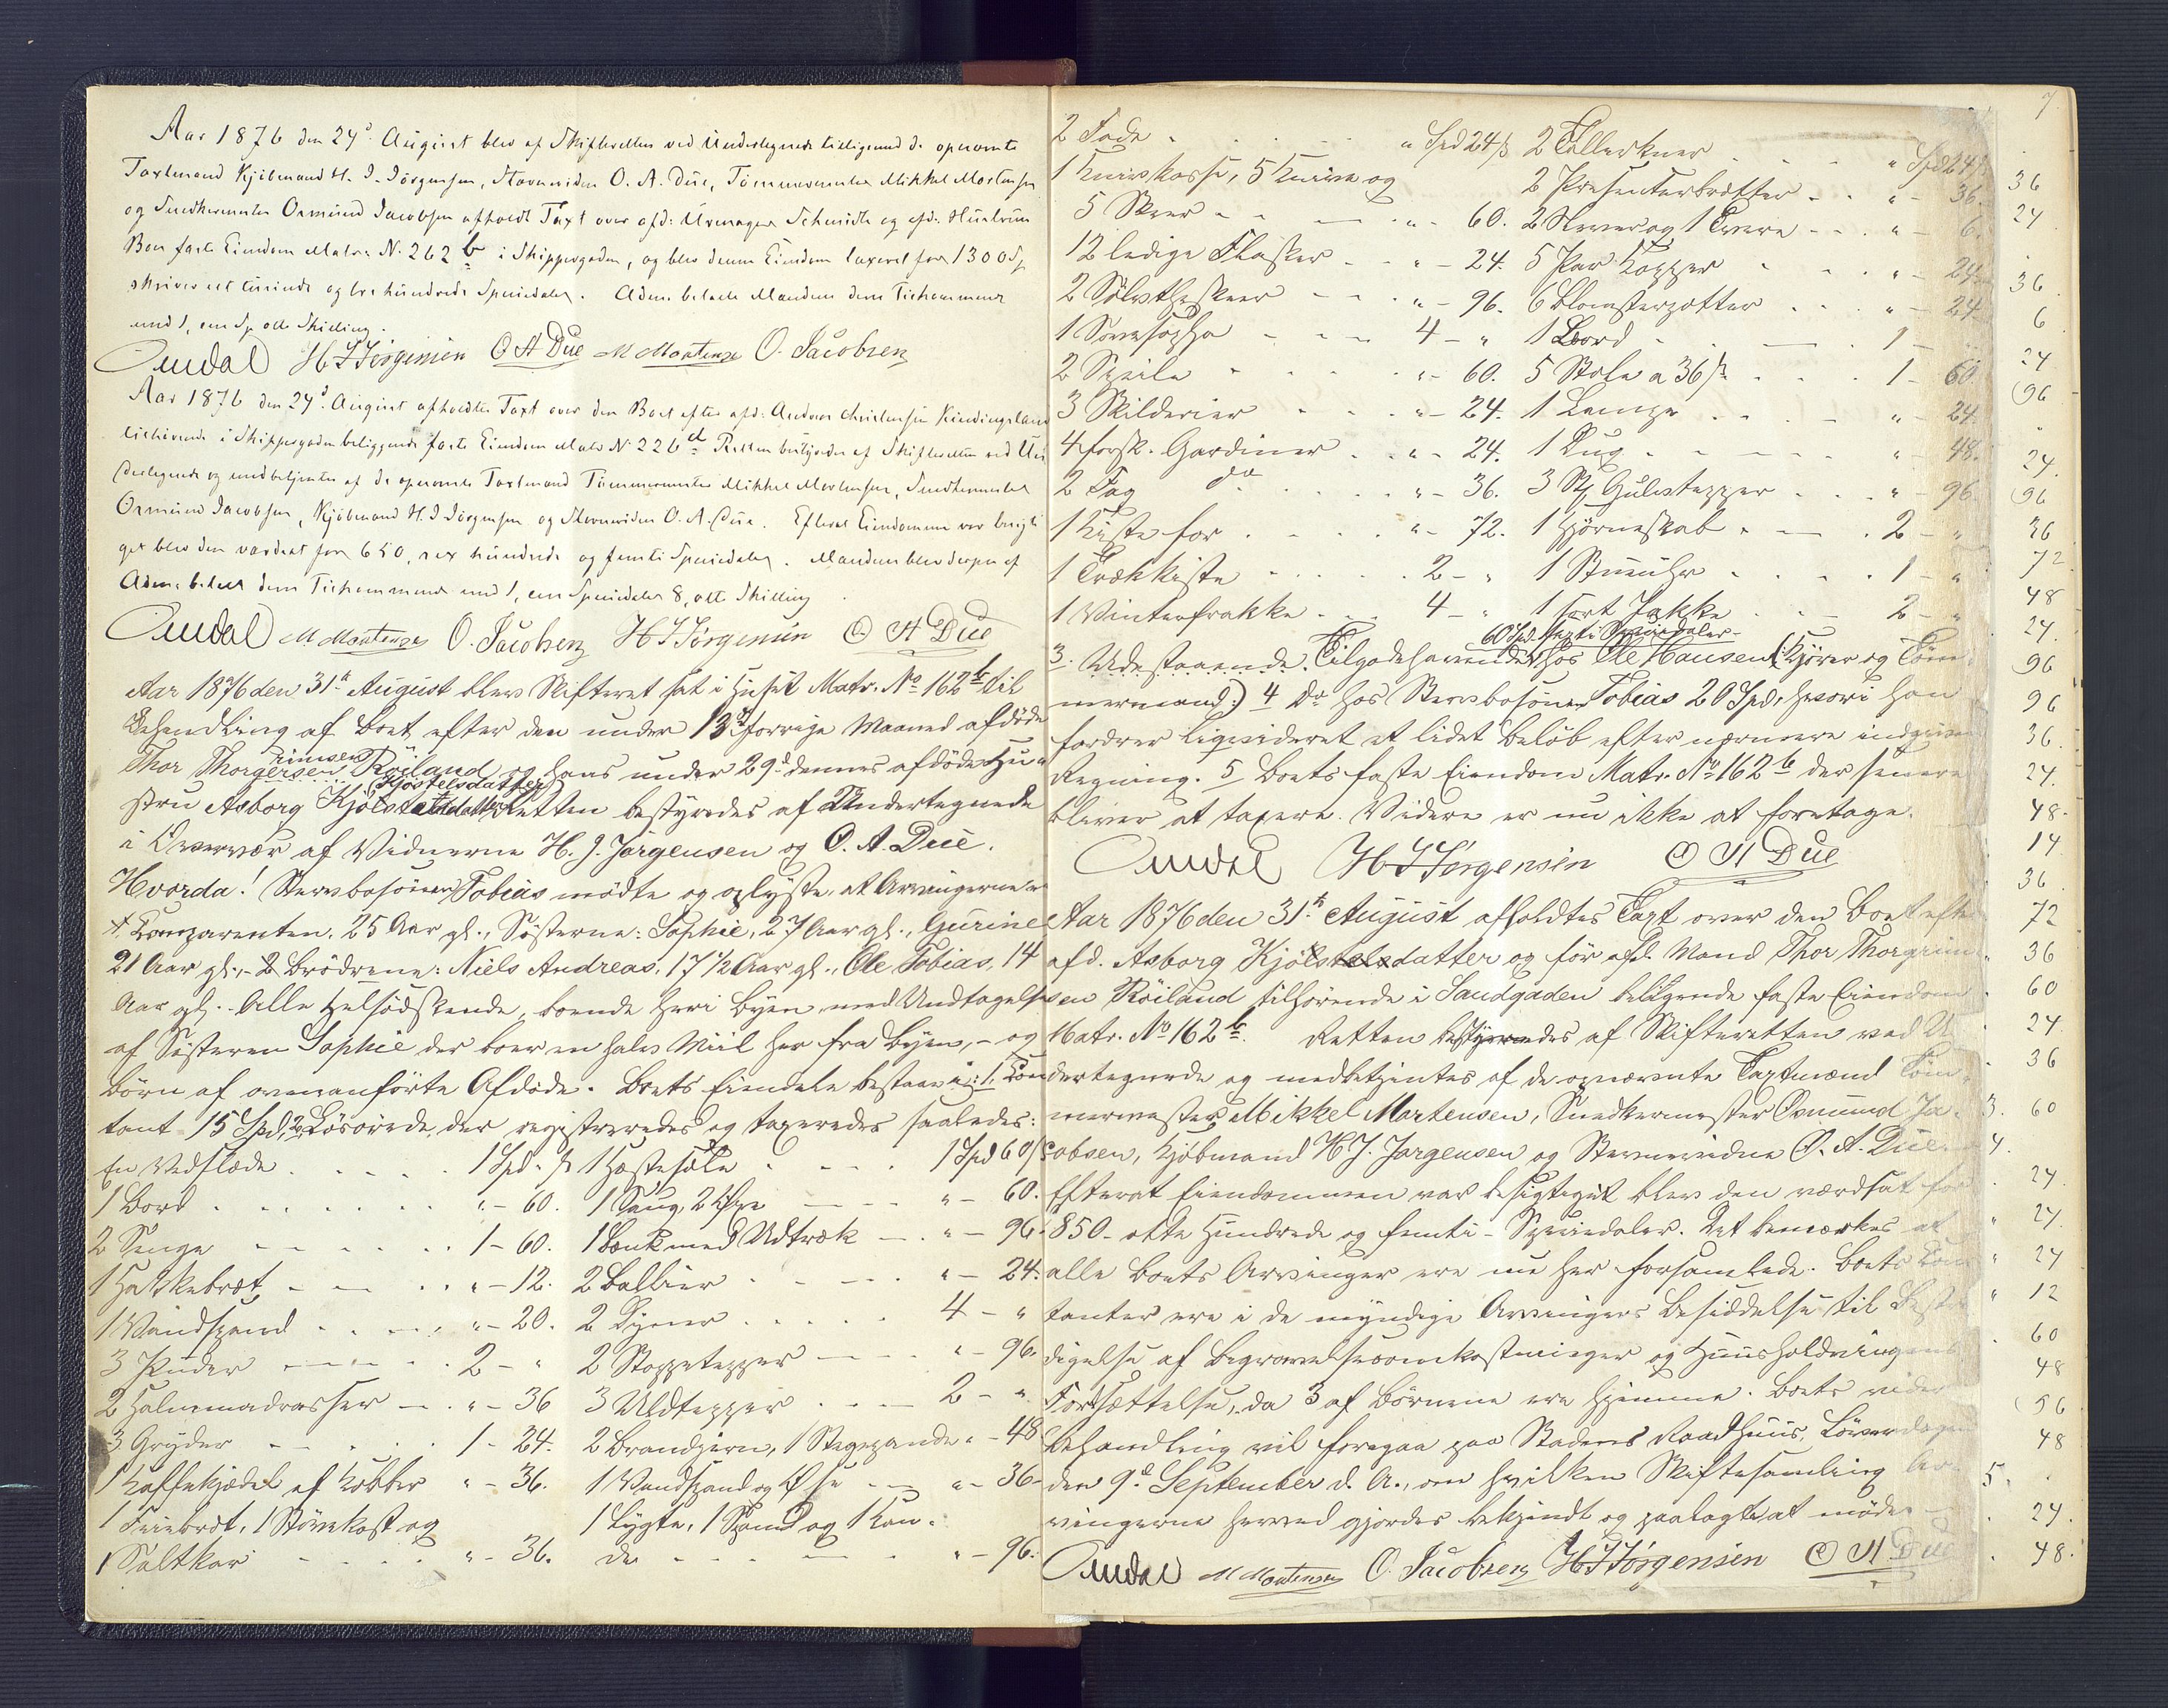 Aar 1876 den 24d August blev af Skifteretten ved Undertegnede tilligemed de opnævnte
Taxtmænd Kjöbmand H. J. Jörgensen, Stevnevidne O. A. Due, Tömmermester Mikkel Mortensen
og Snedkermester Osmund Jacobsen afholdt Taxt over afd: Urmager Schmidt og afd: Hustrues
Boes faste Eiendom Matr: No 262 b i Skippergaden, og blev denne Eiendom taxeret for 1300 Sp
skriver eet tusinde og tre hundrede Speciedaler. Adm. betalte Mændene deres Tilkommende
med 1, en Sp otte Skilling.
Omdal H J Jörgensen O A Due M Mortensen O. Jacobsen
Aar 1876 den 24d August afholdtes Taxt over den Boet efter afd: Andreas Christensen Kindingsland
tilhörende i Skippergaden beliggende faste Eiendom Matr No 226 d Retten bestyredes af Skifteretten ved Un
dertegnede og medbetjentes af de opnævnte Taxtmænd Tömmermester Mikkel Mortensen, Snedkermester
Osmund Jacobsen, Kjöbmand H. J Jörgensen og Stevnevidne O. A. Due. Efterat Eiendommen var besigti
get blev den værdsat for 650, sex hundrede og femti Speciedaler. Mændene blev derpaa af
Adm: betalt deres Tilkommende med 1, en Speciedaler 8, otte Skilling
Omdal M Mortensen O. Jacobsen H J Jörgensen O A Due
Aar 1876 den 31te August blev Skifteret sat i Huset Matr. No 162 b til
Behandling af Boet efter den under 13d forrige Maaned afdöde
rimsen
Thor Thorgersen Röiland og hans under 29d dennes afdöde Hu-
Kjöstelsdatter
stru Asborg Kjölstadatter Retten bestyredes af Undertegnede
i Overvær af Vidnerne H. J. Jörgensen og O. A. Due.
Hvorda! Stervbosönnen Tobias mödte og oplyste, at Arvingerne er
Komparenten, 25 Aar gl., Söstrene: Sophie, 27 Aar gl., Gurine
21 Aar gl., 2 Brödrene: Niels Andreas, 17 1/2 Aar gl., Ole Tobias, 14
Aar gl. Alle Helsödskende, boende heri Byen med Undtagelse
af Sösteren Sophie der boer en halv Miil her fra Byen, – og
Börn af ovenanförte Afdöde. Boets Eiendele bestaar i: 1, Kon
tant 15 Spd, 2, Lösöre der registreredes og taxeredes saaledes:
En Vedslæde . . . 1 Spd " ß 1 Hestesæle . . . 1 Spd 60 ß
1 Bord . . . " - 60. 1 Saug, 2 Öxe — " - 60.
2 Senge . . . 1 - 60. 1 Bænk med Udtræk — " - 96.
1 Hakkebræt . . . " - 12. 2 Ballier . . . " - 24.
1 Vandspand . . . " - 20. 2 Dyner . . . 4 - "
3 Puder . . . 2 - " 2 Stoppetepper — " - 96.
2 Halmmadrasser — " - 36 3 Uldtepper . . . 2 - "
3 Gryder . . . 1 - 24. 2 Brandjern, 1 Stegepande " - 48
1 Kaffekjedel af Kobber " - 36. 1 Vandspand og Öse — " - 36-
1 Feiebræt, 1 Stövekost og 1 Lygte, 1 Spand og 1 Kan-
1 Saltkar . . . " - 36. de . . . " - 96.
7
2 Fade . . . " Spd 24 ß 2 Tallerkner . . . " Spd 24 ß
1 Knivskasse, 5 Knive og 2 Presenterbrætter . . " - 36.
5 Skeer . . . " - 60. 2 Skeer og 1 Tvare . . " - 6.
12 ledige Flasker . . " - 24. 5 Par Kopper . . . " - 24.
2 Sölvtheskeer . . . " - 96. 6 Blomsterpotter . . . " - 24
1 Sovesopha . . . 4 - " 1 Bord . . . 1 -
2 Speile . . . " - 60. 5 Stole a 36 ß . . . 1 - 60.
3 Skilderier . . . " - 24. 1 Lampe . . . " 24.
4 forsk. Gardiner . . " - 24. 1 Dug . . . " - 48.
2 Fag do . . . " - 36. 3 Stk Gulvtepper . . . " - 96.
1 Kiste for . . . " - 72. 1 Hjörneskab . — . 2 - "
1 Trækkiste . . . 2 - " 1 Stueuhr . . . 1 - "
1 Vinterfrakke . . 4 - " 1 sort Jakke . . . 2 - "
60 Spd. sexti Speciedaler
3. Udestaaende Tilgodehavender hos Ole Hansen (Kjörer og Töm
mermand) 4 Do hos Stervbosönnen Tobias 20 Spd, hvori han
fordrer liqvideret et lidet Belöb efter nærmere indgiven
Regning. 5 Boets faste Eiendom Matr. No 162 b der senere
bliver at taxere. Videre er nu ikke at foretage.
Omdal H J Jörgensen O A Due
Aar 1876 den 31te August afholdtes Taxt over den Boet efter
afd. Asborg Kjölstelsdatter og för afd. Mand Thor Thorgrim
sen Röiland tilhörende i Sandgaden beliggende faste Eiendom
Matr. No 162 b. Retten bestyredes af Skifteretten ved Un
dertegnede og medbetjentes af de opnævnte Taxtmænd Töm
mermester Mikkel Mortensen, Snedkermester Osmund Ja-
cobsen, Kjöbmand H J. Jörgensen og Stevnevidne O. A. Due.
Efterat Eiendommen var besigtiget blev den værdsat for
850 - otte Hundrede og femti - Speciedaler. Det bemærkes at
alle Boets Arvinger ere nu her forsamlede. Boets Kon
tanter ere i de myndige Arvingers Besiddelse til Bestri
digelse af Begravelsesomkostninger og Huusholdningens
Fortsættelse, da 3 af Börnene ere hjemme. Boets videre
Behandling vil foregaa paa Stadens Raadhuus, Löverdagen
den 9d September d. A., om hvilken Skiftesamling Ar-
vingerne herved gjordes bekjendt og paalagt at möde –
Omdal M Mortensen O. Jacobsen H J Jörgensen O A Due
36
24
36
6
24
96
24.
96
36
72
48
24.
96
96
36.
24.
48.
14
36
72
36
60
24
36
3. 60
4.
24.
24.
24
12
60
48
96
48
5.
24.
48.